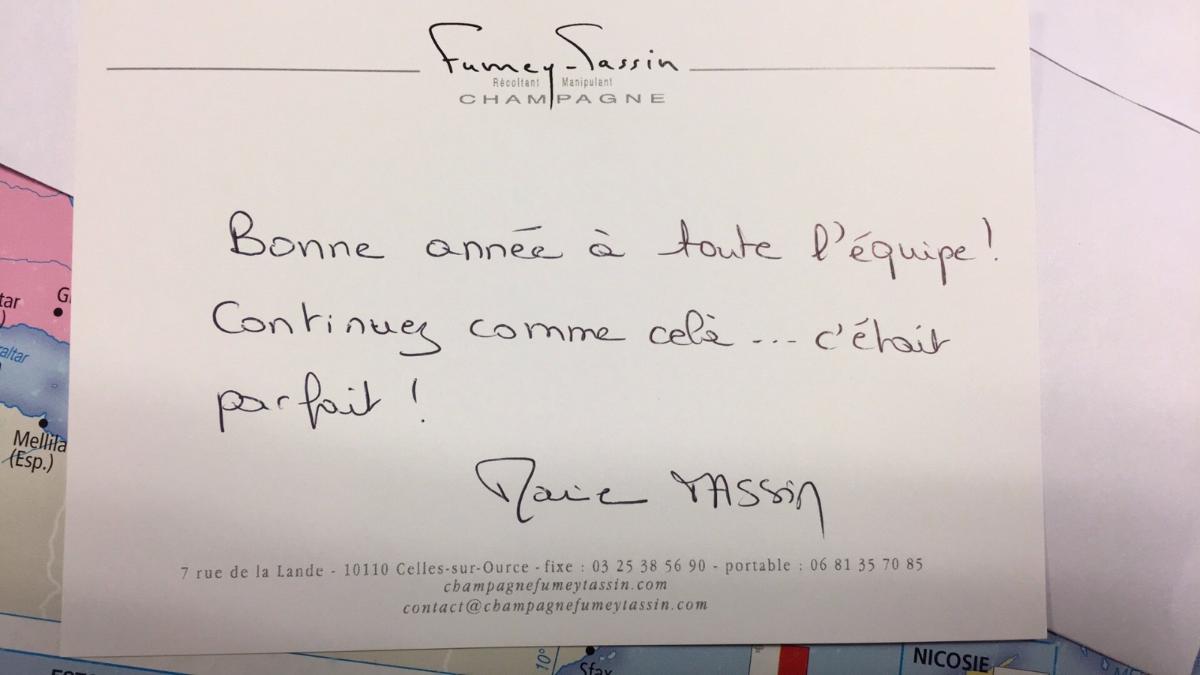 Fumey-Tassin
Récoltant Manipulant
CHAMPAGNE
Bonne année à toute l'équipe!
Continuez comme celà ... c'était
parfait !
Marie TASSIN
7 rue de la Lande - 10110 Celles-sur-Ource - fixe : 03 25 38 56 90 - portable : 06 81 35 70 85
champagnefumeytassin.com
contact@champagnefumeytassin.com
Mellila
(Esp.)
10°
Sfax
NICOSIE